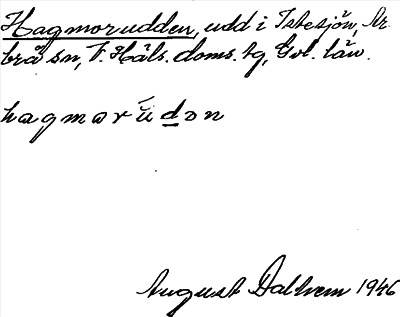 Hagmorudden, udd i Istesjön, Ar-
brå sn, V. Häls. doms. tg, Gvl. län.
hagmorúdən
August Dalhem 1946